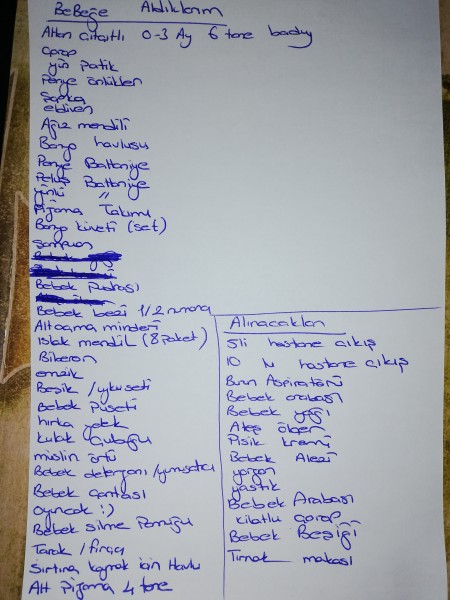 BeBeğe Aldıklarım
Alttan Çıtçıtlı 0-3 Ay 6 tane badiy
Çorap
yün patik
Penye önlükler
Şapka
eldiven
Ağız mendili
Banyo havlusu
Penye Battaniye
Peluş Battaniye
yünlü "
Pijama Takımı
Banyo küveti (set)
Şampuan
Bebek pudrası
Bebek bezi 1/2 numara
Alt açma minderi
Islak mendil (8 paket)
Biberon
emzik
Beşik / uyku seti
Bebek Puseti
hırka yelek
kulak Çubuğu
müslin örtü
Bebek deterjanı / yumuşatıcı
Bebek çantası
oyuncak :)
Bebek silme Pamuğu
Tarak / fırça
Sırtına koymak için Havlu
Alt Pijama 4 tane
Alınacaklar
5li hastane çıkış
10 lu hastane çıkış
Burun Aspiratörü
Bebek arabası
Bebek yağı
Ateş ölçer
Pişik kremi
Bebek Alezi
yorgan
yastık
Bebek Arabası
kilotlu çorap
Bebek Beşiği
Tırnak makası